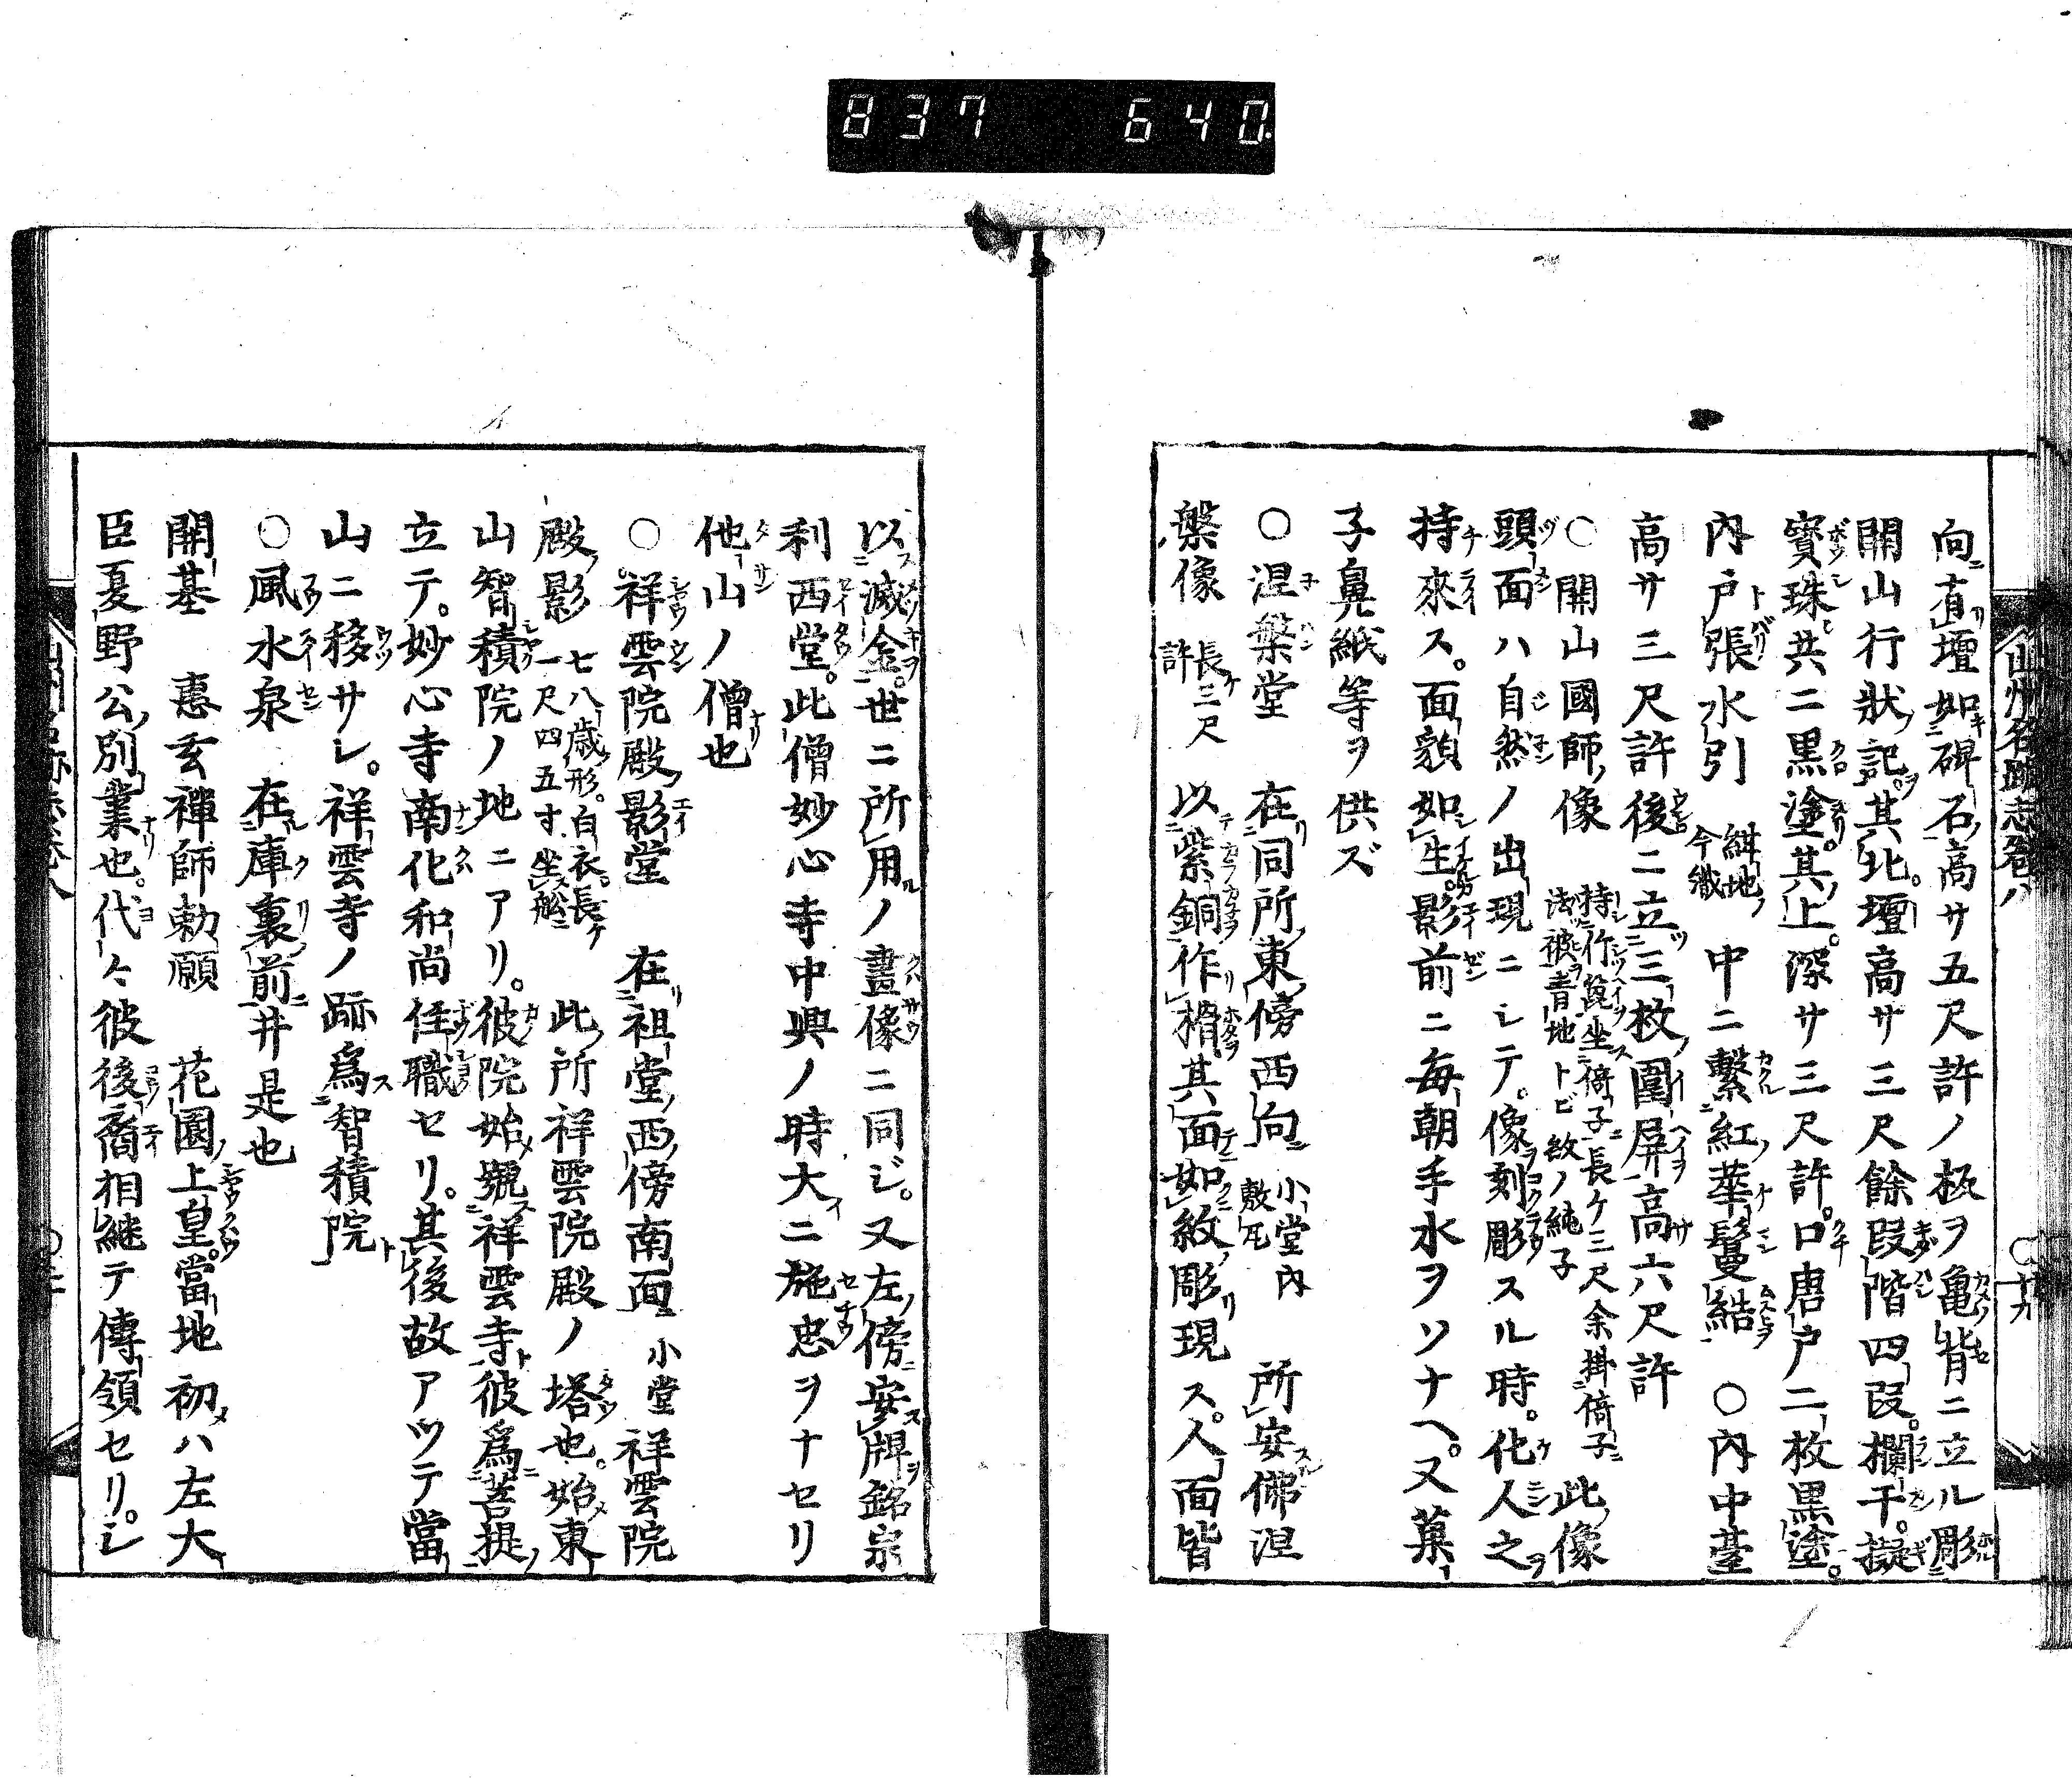 837 640
山州名跡志巻八
十九
向有壇如碑石高サ五尺許ノ板ヲ亀背ニ立ル彫
開山行状記其北壇高サ三尺餘段階四段欄干擬
寳珠共ニ黒塗其上深サ三尺許口唐戸二枚黒塗
内戸張水引 紺地今織 中ニ繋紅華鬘結 ○内中臺
高サ三尺許後ニ立三枚圍屏高六尺許
○開山國師像 持竹箆坐倚子長ケ三尺余掛倚子法被青地トビ紋ノ純子 此像
頭面ハ自然ノ出現ニシテ像刻彫スル時化人之
持來ス面貌如生影前ニ毎朝手水ヲソナヘ又菓
子鼻紙等ヲ供ズ
○涅槃堂 在同所東傍西向 小堂内敷瓦 所安佛涅
槃像 長ケ三尺許 以紫銅作揩其面如紋彫現ス人面皆
以滅金世ニ所用ノ畫像ニ同ジ又左傍安牌銘宗
利西堂此僧妙心寺中興ノ時大ニ施忠ヲナセリ
他山ノ僧也
○祥雲院殿影堂 在祖堂西傍南面 小堂 祥雲院
殿影 七八歳形白衣長ケ一尺四五寸坐舩 此所祥雲院殿ノ塔也始東
山智積院ノ地ニアリ彼院始號祥雲寺彼爲菩提
立テ妙心寺南化和尚住職セリ其後故アツテ當
山ニ移サレ祥雲寺ノ跡爲智積院
○風水泉 在庫裏前井是也
開基 惠玄禅師勅願 花園上皇當地初ハ左大
臣夏野公別業也代々彼後裔相継テ傳領セリシ